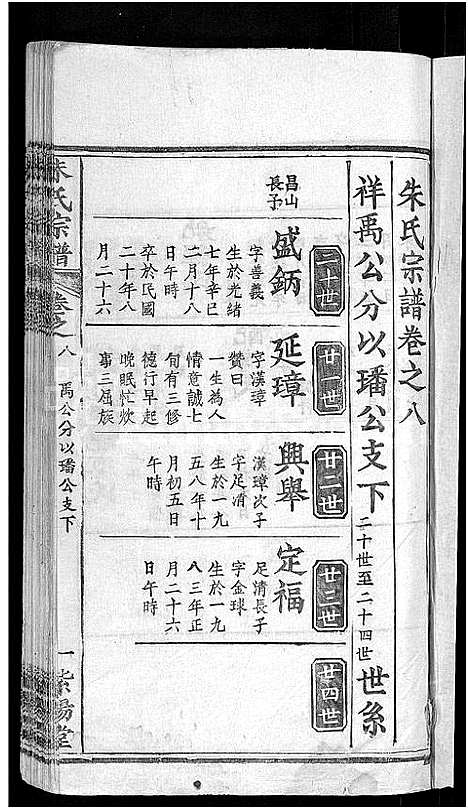 朱氏宗譜卷之八
祥禹公分以璠公支下二十世至二十四世世系
二十世
昌山長子
盛鈵
字善義
生於光緒
七年辛巳
二月十八
日午時
卒於民國
二十年八
月二十六
廿一世
延璋
字漢璋
贊曰
一生為人
情意誠七
旬有三修
德行早起
晚眠忙炊
事三屆族
廿二世
興舉
漢璋次子
字足清
生於一九
五八年十
月初五日
午時
廿三世
定福
足清長子
字金球
生於一九
八三年正
月二十六
日午時
廿四世
朱氏宗譜
卷之八
禹公分以璠公支下
一
紫陽堂